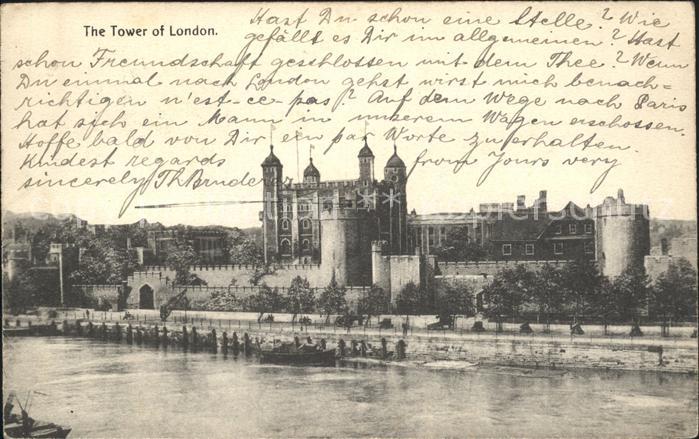 The Tower of London.
Hast Du schon eine Stelle? Wie
gefällt es Dir im allgemeinen? Hast
schon Freundschaft geschlossen mit dem Thee? Wenn
Du einmal nach London gehst wirst mich benach-
richtigen n'est-ce-pas? Auf dem Wege nach Paris
hat sich ein Mann in unserem Wagen erschossen.
Hoffe bald von Dir ein par Worte zu erhalten.
Kindest regards from Yours very
sincerely